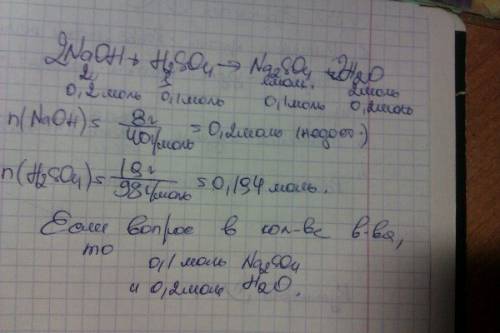 2NaOH + H₂SO₄ → Na₂SO₄ + 2H₂O
2 1 1моль. 2моль
0,2моль 0,1моль 0,1моль 0,2моль
n(NaOH) = 8г / 40г/моль = 0,2моль (недост.)
n(H₂SO₄) = 19г / 98г/моль = 0,194 моль.
Если вопрос в кол-ве в-ва,
то
0,1 моль Na₂SO₄
и 0,2моль H₂O.